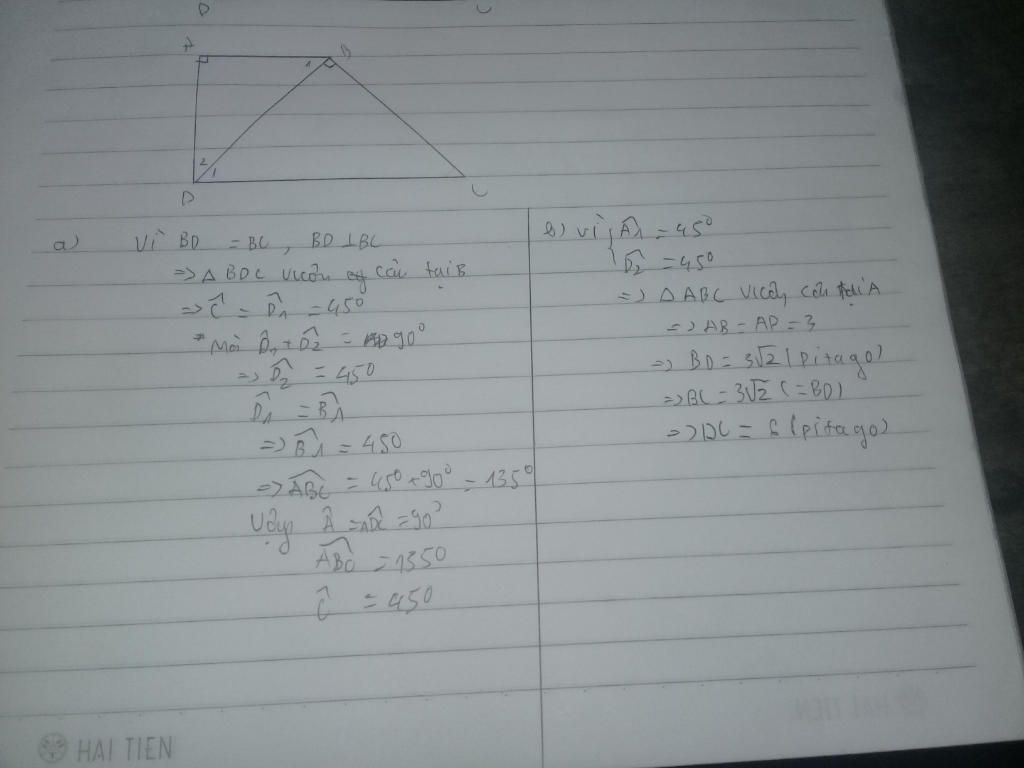 D C
A B
1
2 1
D C
a) Vì BD = BC, BD ⊥ BC
=> △ BDC vuông cân tại B
=> Ĉ = D̂1 = 45°
Mà D̂1 + D̂2 = 90°
=> D̂2 = 45°
D̂1 = B̂1
=> B̂1 = 45°
=> ABC̑ = 45° + 90° = 135°
Vậy Â = = 90°
ABC̑ = 135°
Ĉ = 45°
b) Vì Â1 = 45°
D̂2 = 45°
=> △ ABC vuông cân tại A
=> AB = AD = 3
=> BD = 3√2 (pitago)
=> BC = 3√2 (= BD)
=> DC = 6 (pitago)
HAI TIEN
HAI TIEN